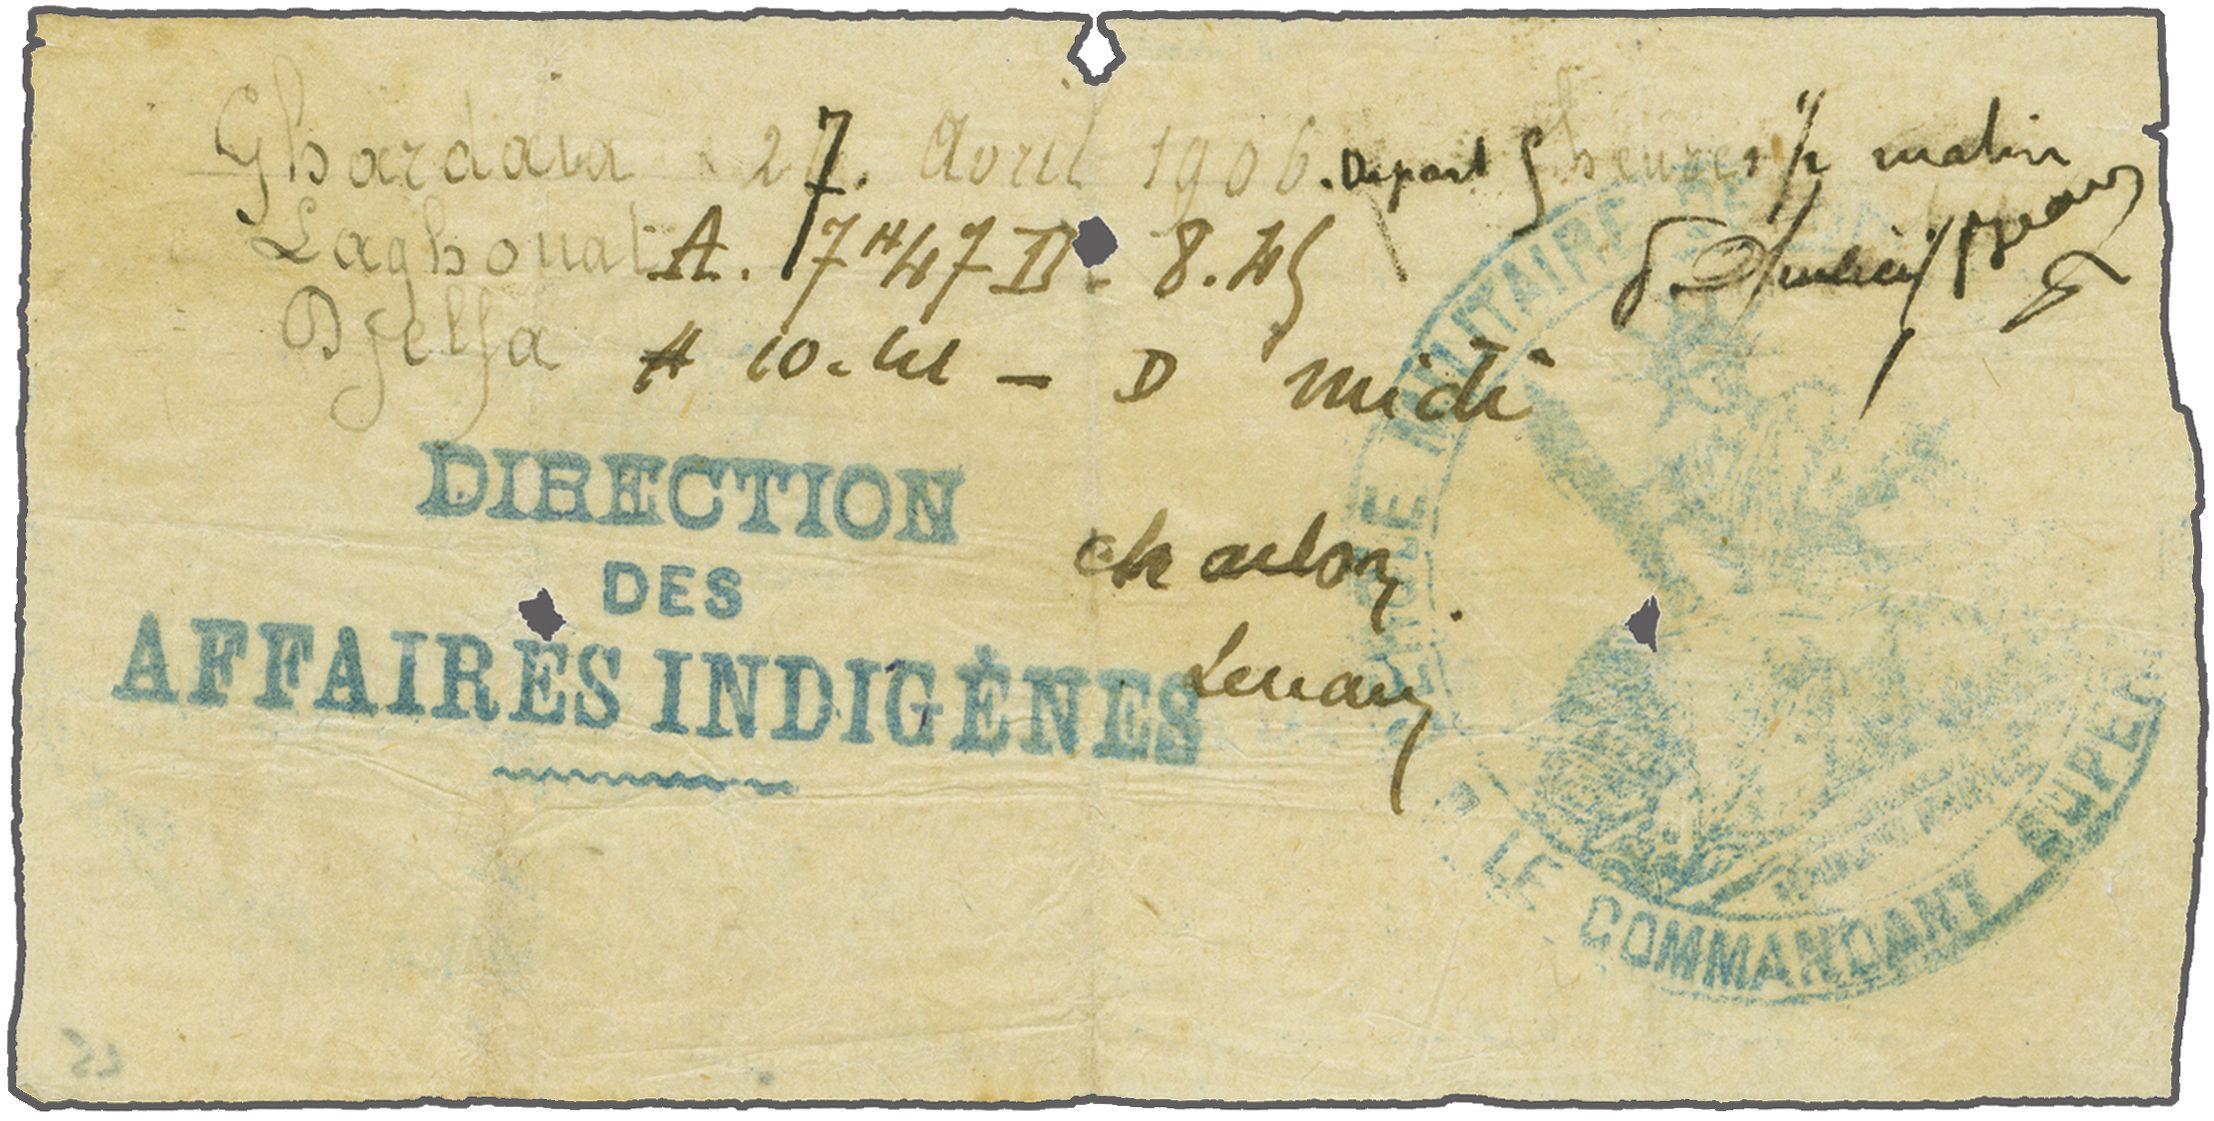 Ghardaia 27. Avril 1906. Depart 5 heures 1/2 matin
Laghouat A. 7H47 D - 8.45
Djelfa A 10. - D midi
DIRECTION
DES
AFFAIRES INDIGÈNES
CERCLE MILITAIRE DE
LE COMMANDANT SUPER
25